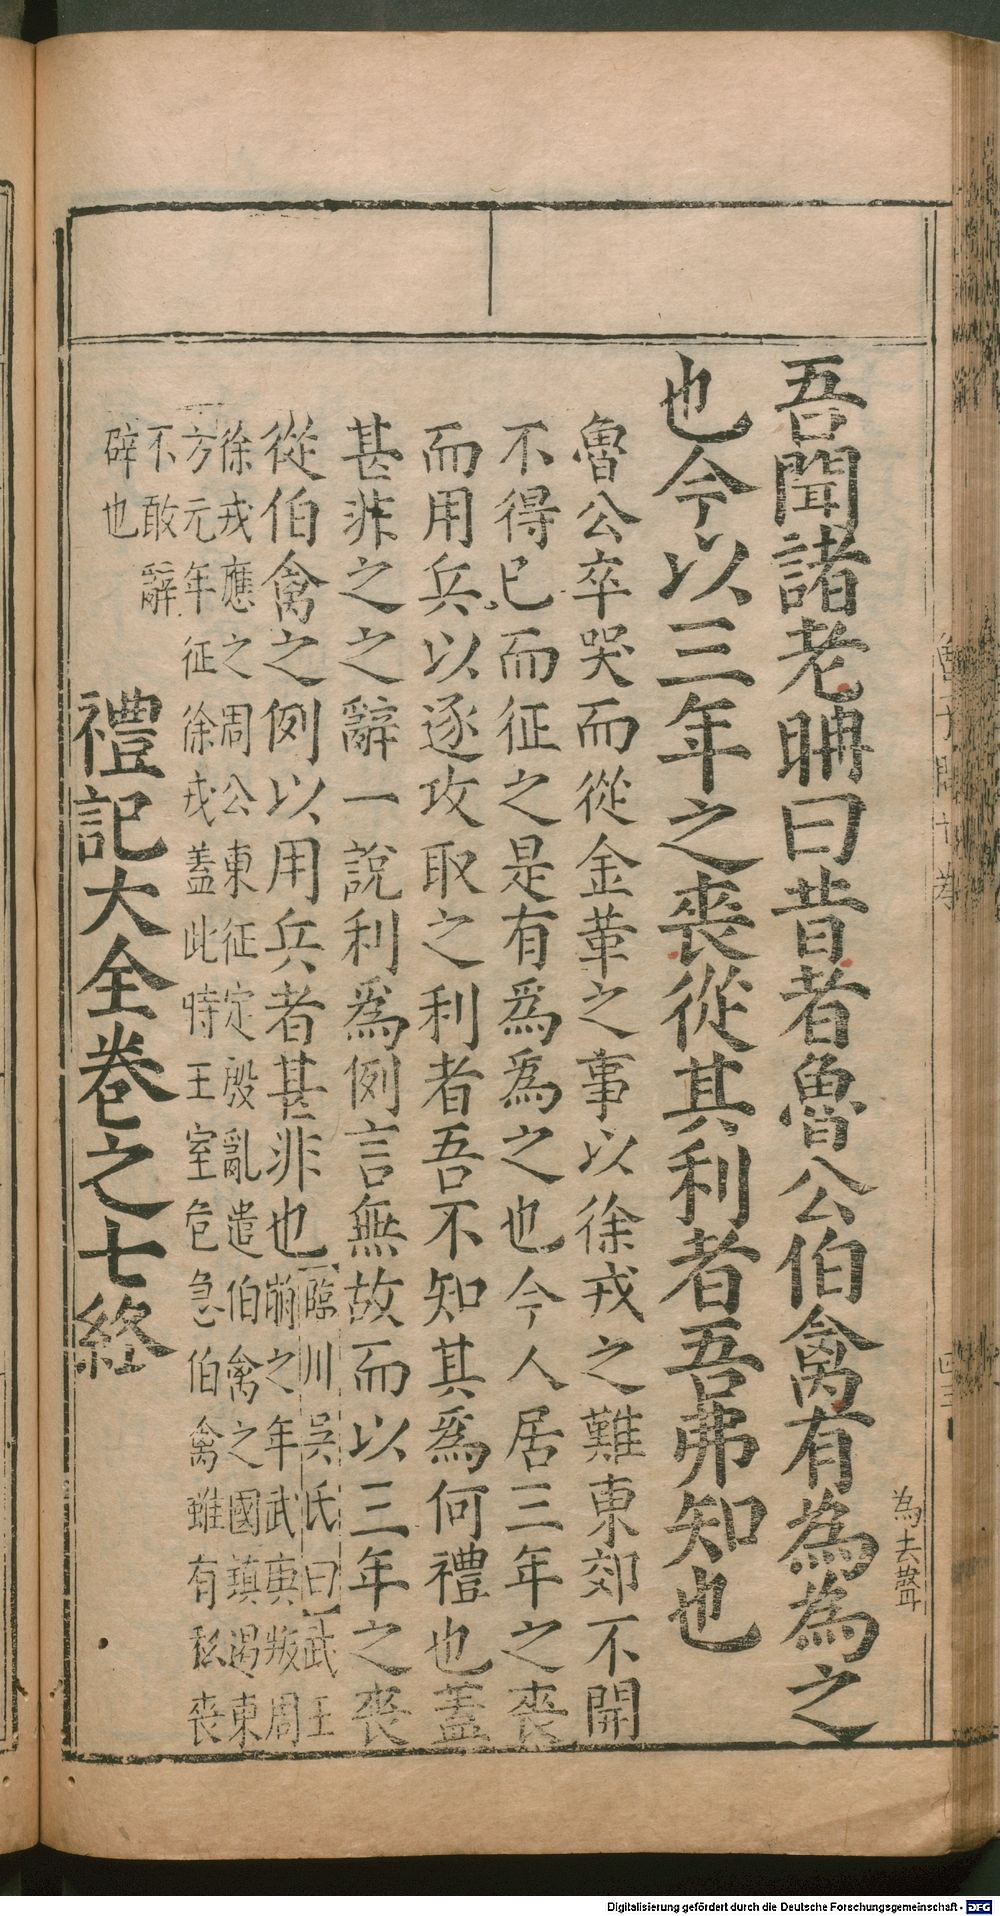 吾聞諸老聃曰昔者魯公伯禽有為為之
為去聲
也今以三年之喪從其利者吾弗知也
魯公卒哭而從金革之事以徐戎之難東郊不開
不得已而征之是有爲爲之也今人居三年之喪
而用兵以逐攻取之利者吾不知其爲何禮也蓋
甚非之之辭一說利爲例言無故而以三年之喪
從伯禽之例以用兵者甚非也
臨川吳氏曰武王
崩之年武庚叛周
徐戎應之周公東征定殷亂遣伯禽之國鎮遏東
方元年征徐戎蓋此時王室危急伯禽雖有私喪
不敢辭
辟也
禮記大全卷之七終
Digitalisierung gefördert durch die Deutsche Forschungsgemeinschaft - DFG